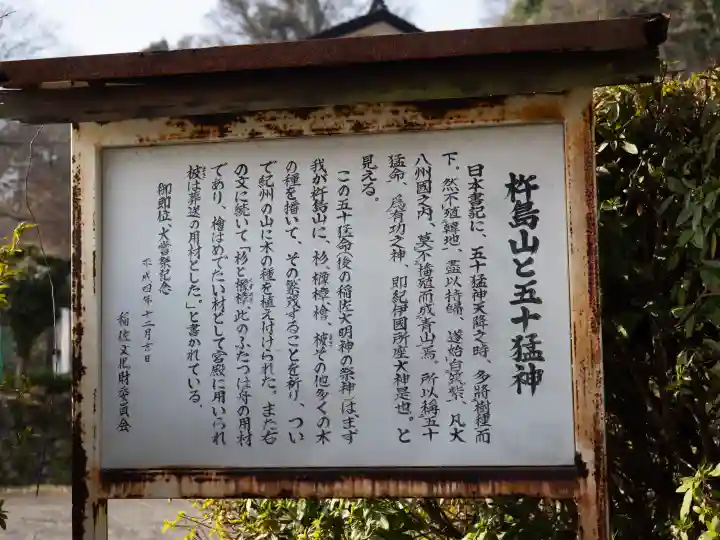 杵島山と五十猛神
日本書記に、五十猛神天降之時、多將樹種而
下。然不殖韓地、盡以持帰、遂始自筑紫、凡大
八州國之内、莫不播殖而成青山焉。所以稱五十
猛命、爲有功之神、即紀伊國所座大神是也。と
見える。
この五十猛命(後の稲佐大明神の祭神)は、まず
我が杵島山に、杉、樟、檜、被その他多くの木
の種を播いて、その繁茂することを祈り、つい
で紀州の山に木の種を植え付けられた。また右
の文に続いて「杉と樟、此のふたつは舟の用材
であり、檜はめでたい材として宮殿に用いられ
被は葬送の用材とした。」と書かれている。
御即位、大嘗祭記念
平成四年十二月吉日
稲佐文化財委員会